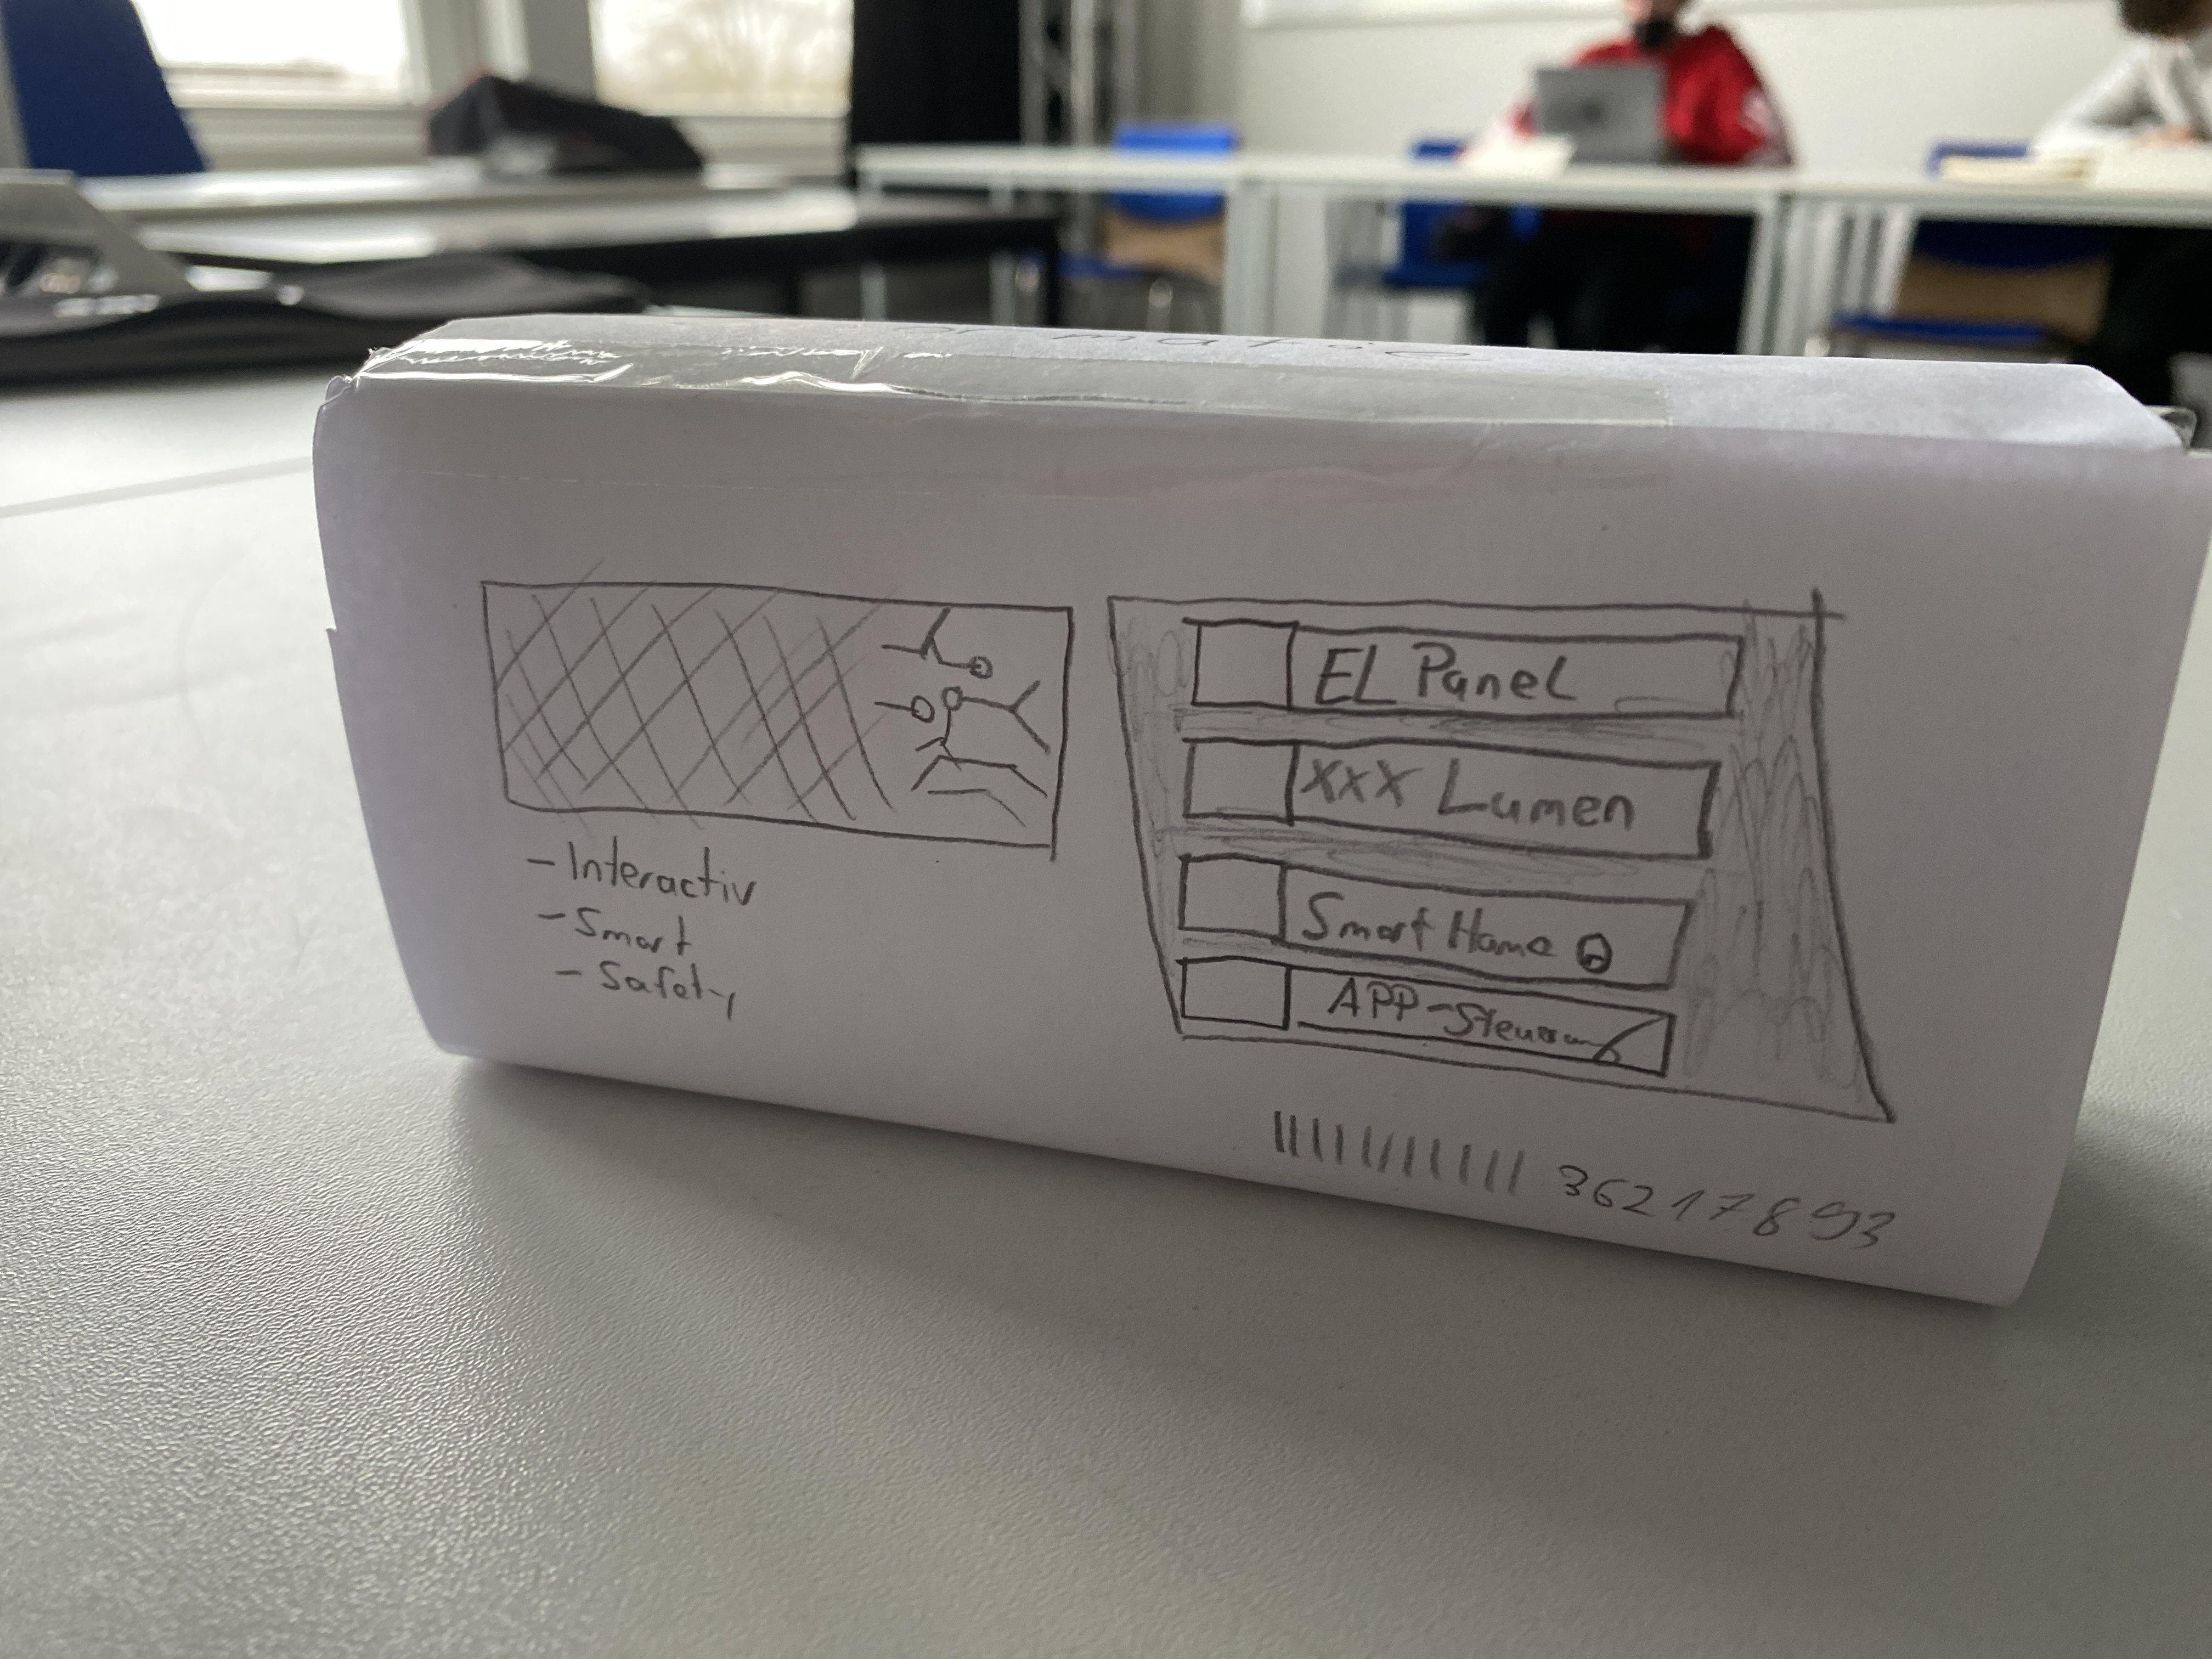 - Interactiv
- Smart
- Safety
EL Panel
XXX Lumen
Smart Home
APP-Steuerung
36217893